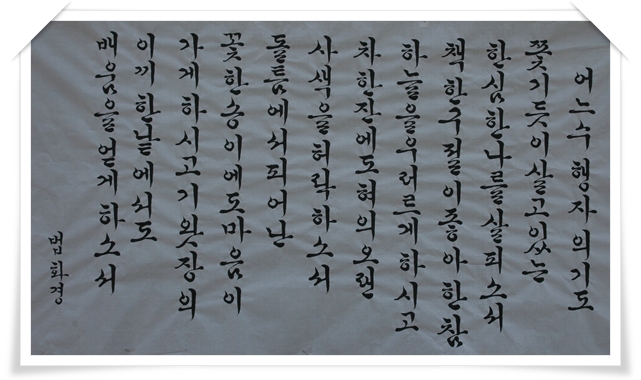 어느 수행자의 기도
쫓기듯이 살고 있는
한심한 나를 살피소서
책 한 구절이 좋아 한참
하늘을 우러르게 하시고
차 한 잔에도 혀의 오랜
사색을 허락하소서
돌틈에서 피어난
꽃 한 송이에도 마음이
가게 하시고 기왓장의
이끼 한낱에서도
배움을 얻게 하소서
법화경